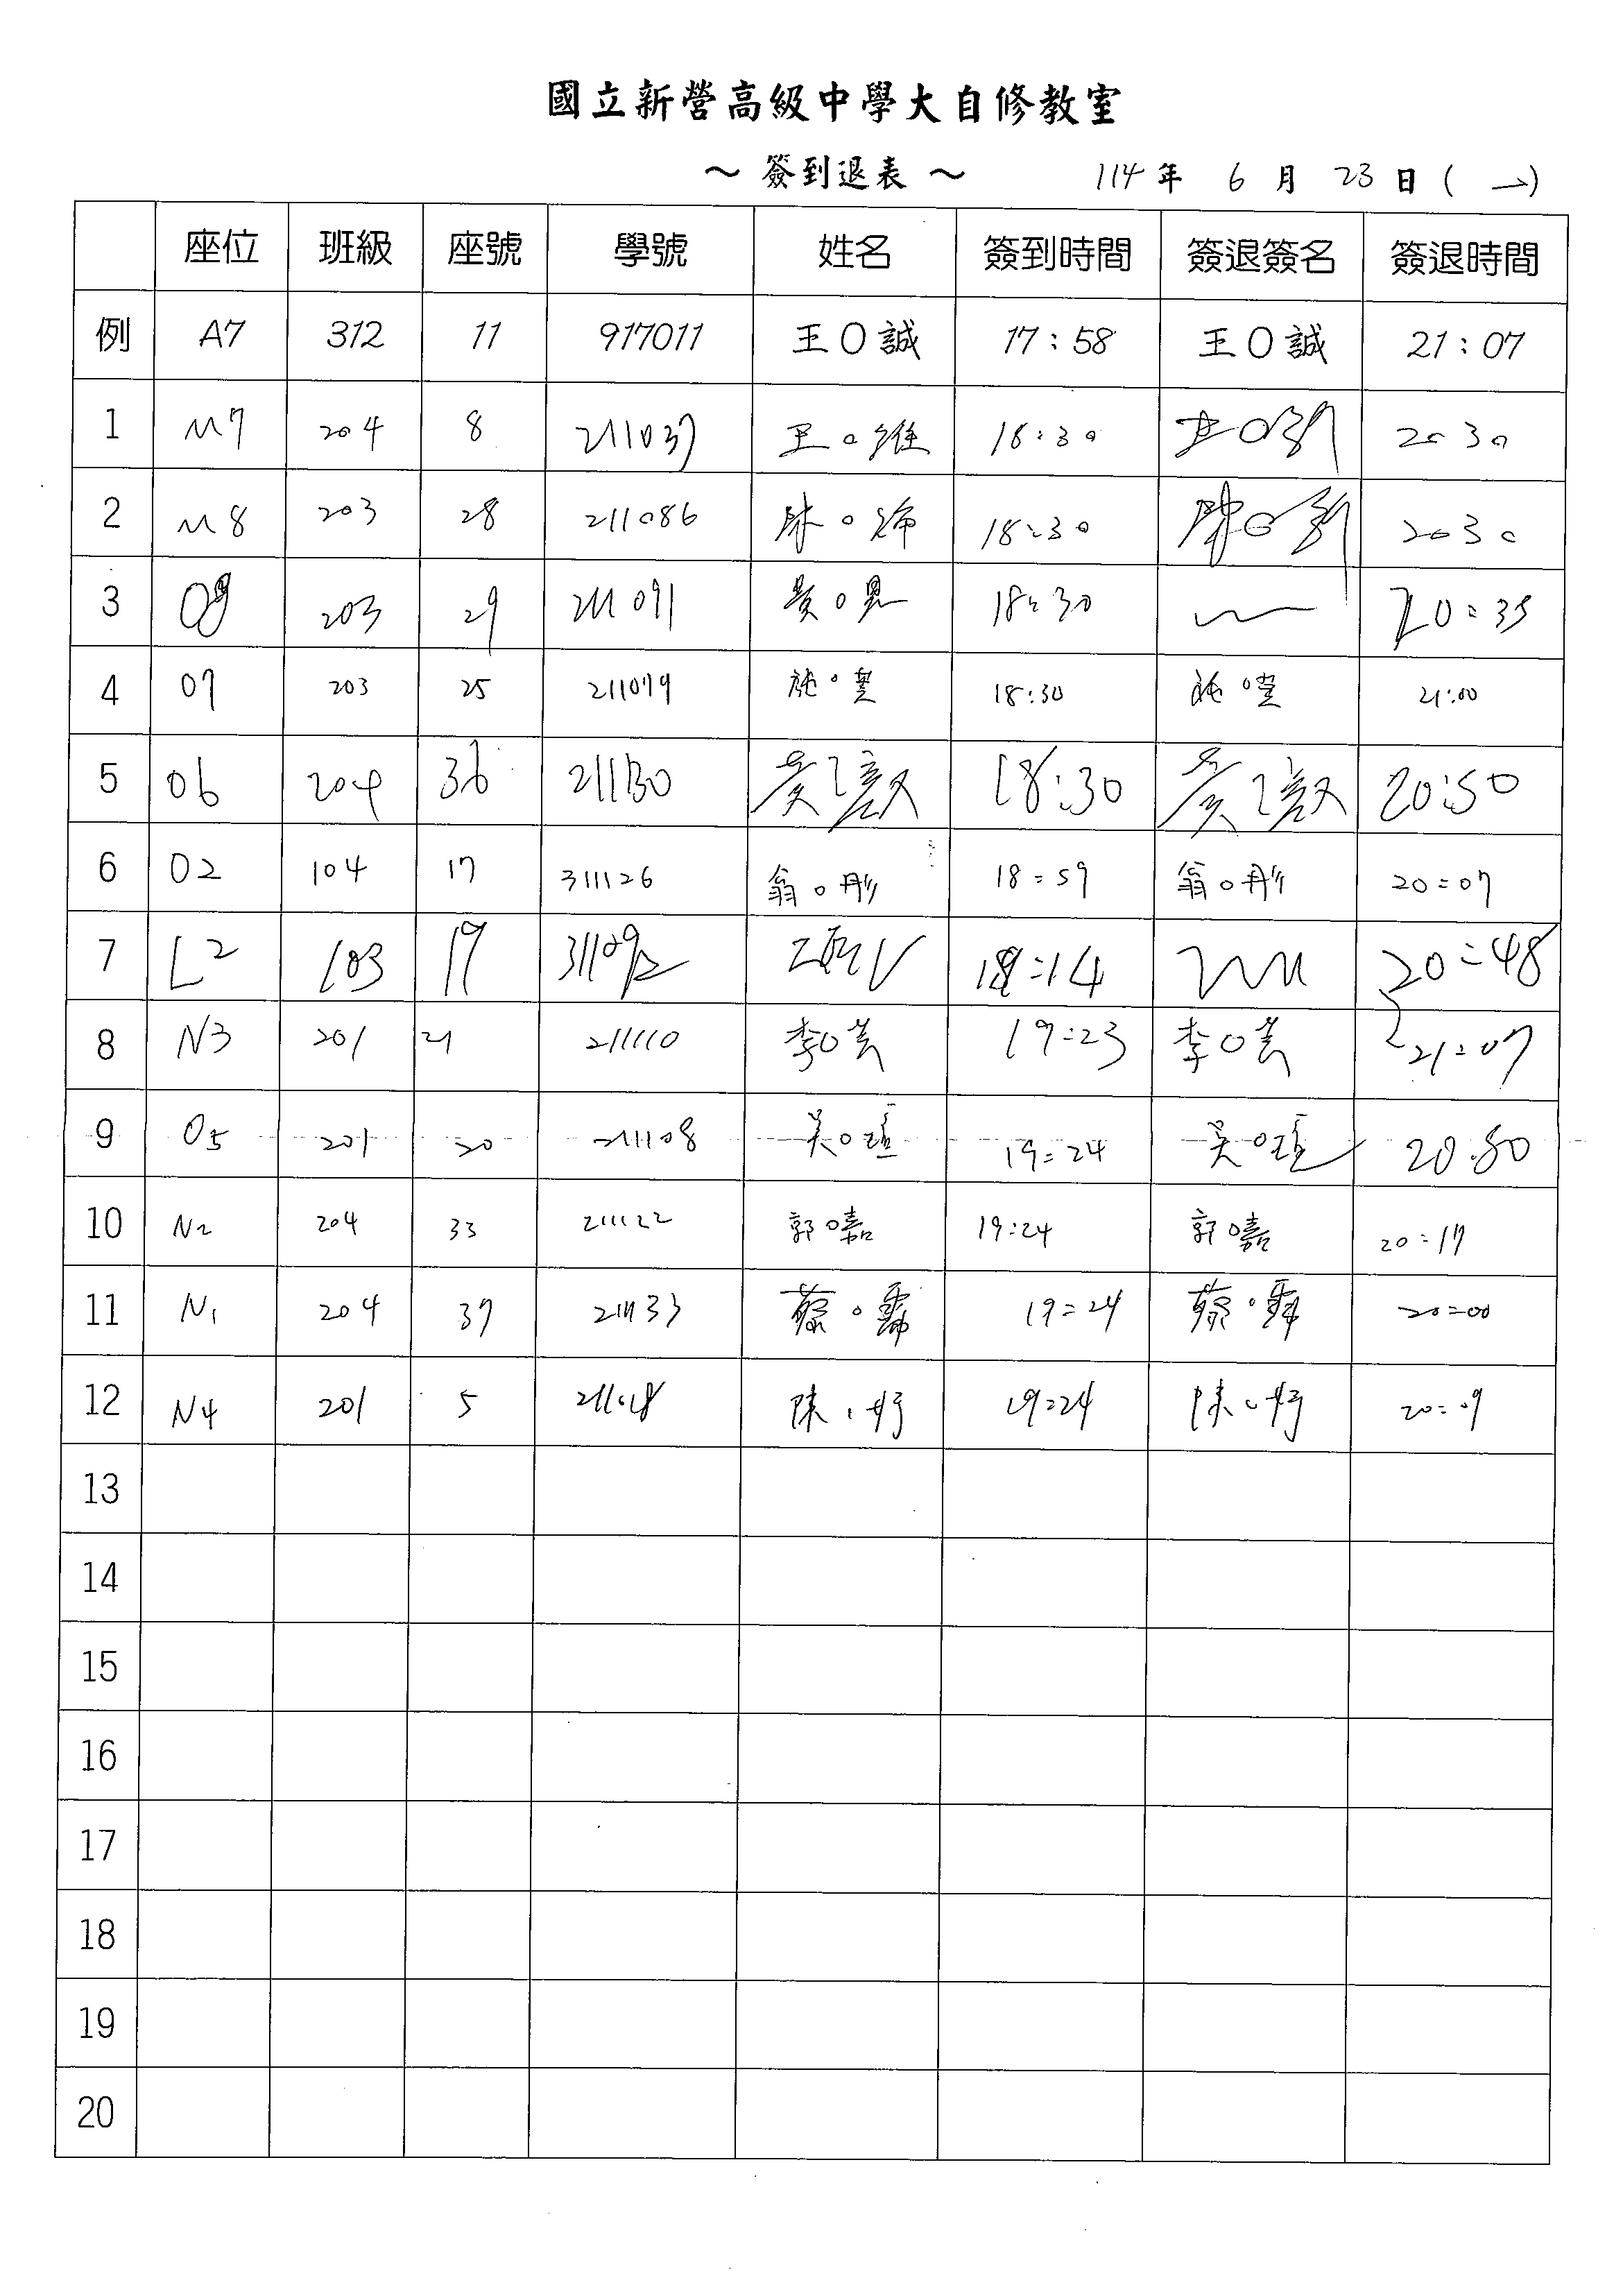 國立新營高級中學大自修教室
～ 簽到退表 ～ 114 年 6 月 23 日 ( 一 )
座位 班級 座號 學號 姓名 簽到時間 簽退簽名 簽退時間
例 A7 312 11 917011 王O誠 17:58 王O誠 21:07
1 M7 204 8 211037 王O維 18:30 20:30
2 M8 203 28 211086 陳O 18:30 陳O 20:30
3 203 29 211091 黃O 18:30 20:35
4 O7 203 25 211079 施O 18:30 施O 21:00
5 O6 204 36 211130 黃 18:30 黃 20:50
6 O2 104 17 311126 翁O彤 18:59 翁O彤 20:07
7 L2 103 19 31109 :14 20:48
8 N3 201 21 211110 李O芸 19:23 李O芸 21:07
9 O5 201 20 211108 吳O瑄 19:24 吳O瑄 20:50
10 N2 204 33 211122 郭O嘉 19:24 郭O嘉 20:17
11 N1 204 37 211133 蔡O霈 19:24 蔡O 20:00
12 N4 201 5 211018 陳O妤 19:24 陳O妤 20:09
13
14
15
16
17
18
19
20